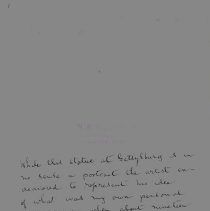 While this statue at Gettysburg is in
no sense a portrait the artist en-
deavored to represent his idea
of what was my own personal
when about nineteen